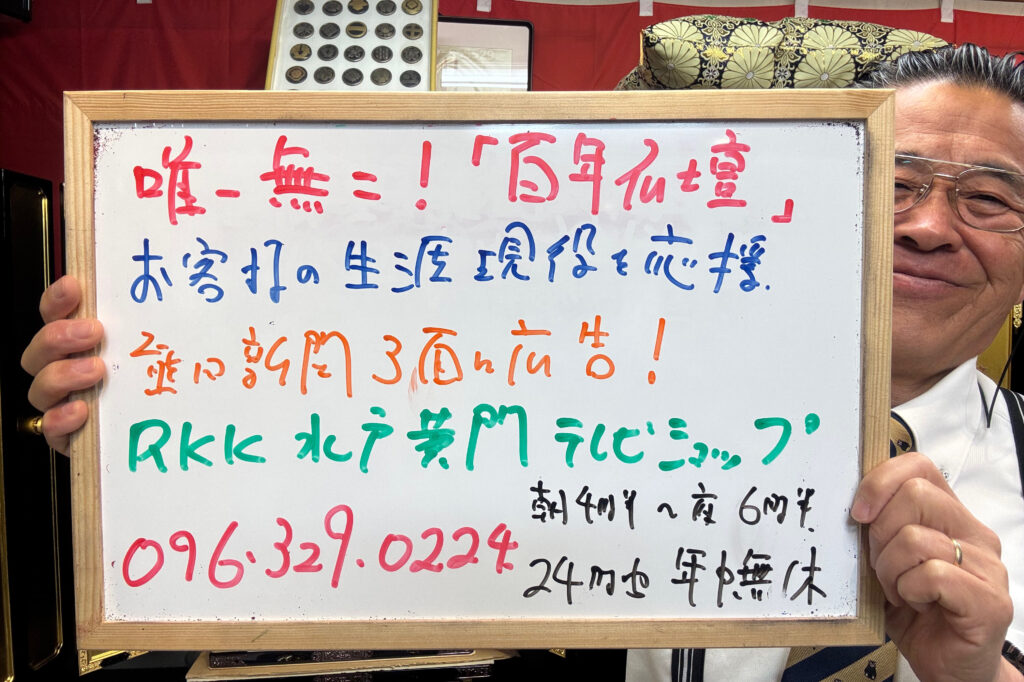 唯一無二!「百年仏壇」
お客様の生涯現役を応援.
熊日新聞3面に広告!
RKK 水戸黄門 テレビショップ
朝4時半~夜6時半
096.329.0224
24時間 年中無休